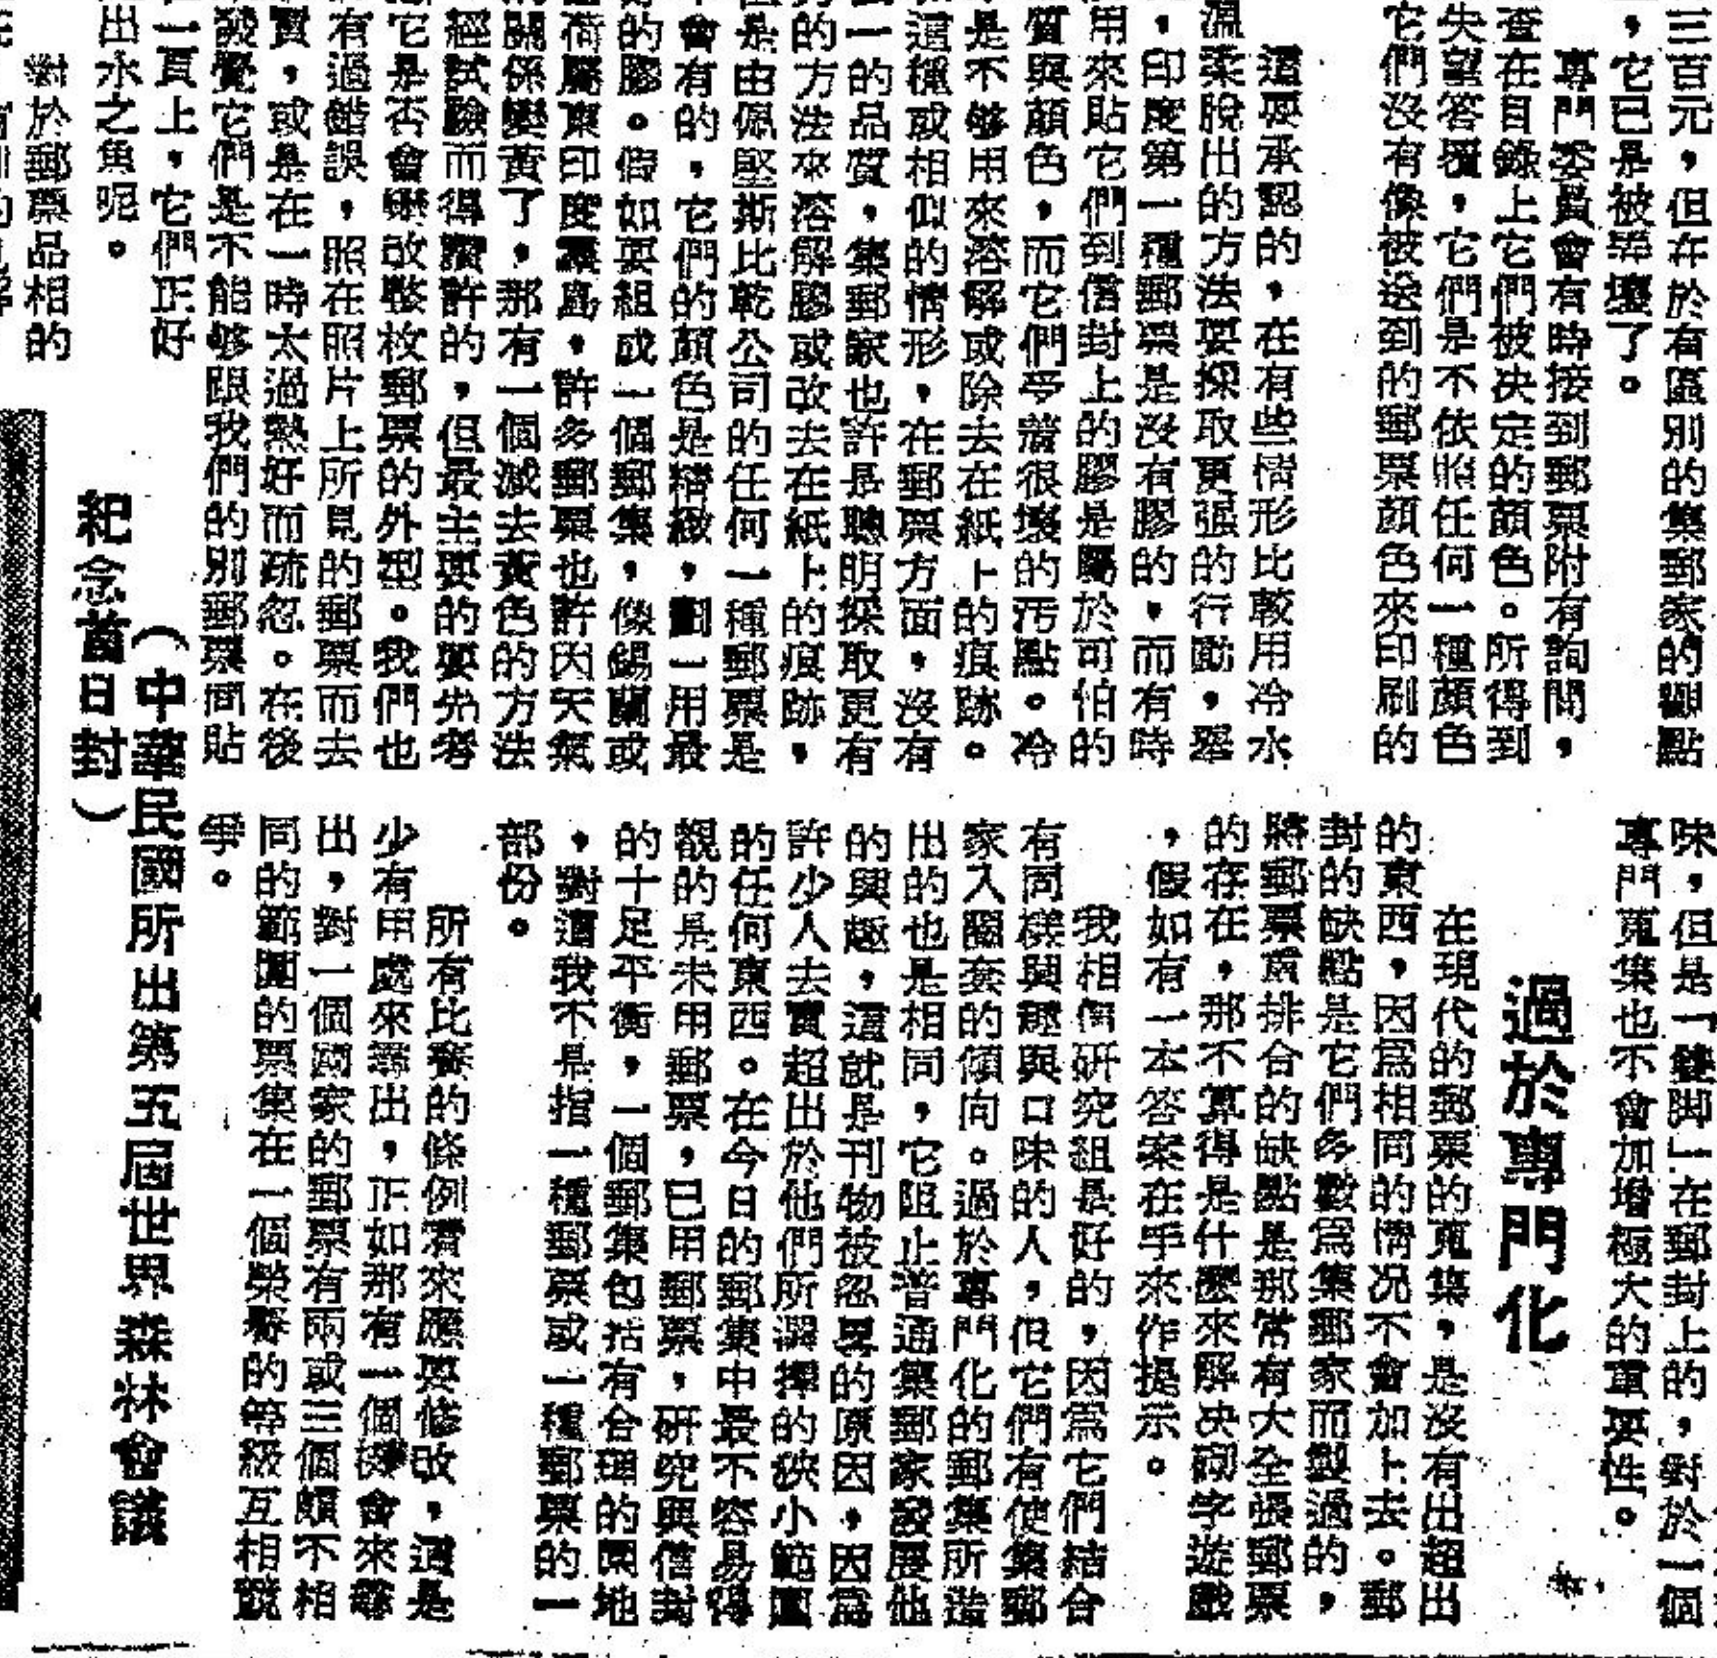 三百元，但在於有區別的集郵家的觀點
，它已是被弄壞了。
專門委員會有時接到郵票附有詢問，
查在目錄上它們被决定的顏色。所得到
失望答覆，它們是不依照任何一種顏色
它們沒有像被送到的郵票顏色來印刷的
還要承認的，在有些情形比較用冷水
溫柔脫出的方法要採取更强的行動，舉
，印度第一種郵票是沒有膠的，而有時
用來貼它們到信封上的膠是屬於可怕的
質與顏色，而它們蒙着很壞的污點。冷
是不够用來溶解或除去在紙上的痕跡。
這種或相似的情形，在郵票方面，沒有
一的品質，集郵家也許是聰明採取更有
的方法來溶解膠或改去在紙上的痕跡，
是由佩堅斯比乾公司的任何一種郵票是
會有的，它們的顏色是精緻，劃一用最
的膠。假如要組成一個郵集，像錫蘭或
荷屬東印度羣島，許多郵票也許因天氣
關係變黃了，那有一個減去黃色的方法
經試驗而得讚許的，但最主要的要先考
它是否會變改整枚郵票的外型。我們也
有過錯誤，照在照片上所見的郵票而去
買，或是在一時太過熱好而疏忽。在後
覺它們是不能够跟我們的別郵票同貼
一頁上，它們正好
出水之魚呢。
對於郵票品相的
味，但是「蹩脚」在郵封上的，對於一個
專門蒐集也不會加增極大的重要性。
過於專門化
在現代的郵票的蒐集，是沒有出超出
的東西，因爲相同的情况不會加上去。郵
封的缺點是它們多數爲集郵家而製過的，
將郵票齊排合的缺點是那常有大全張郵票
的存在，那不算得是什麽來解决詞字遊戲
，假如有一本答案在手來作提示。
我相信研究組是好的，因爲它們結合
有同樣興趣與口味的人，但它們有使集郵
家入圈套的傾向。過於專門化的郵集所造
出的也是相同，它阻止普通集郵家發展他
的興趣，這就是刊物被忽畧的原因，因爲
許少人去賣超出於他們所選擇的狹小範圍
的任何東西。在今日的郵集中最不容易得
覩的是未用郵票，已用郵票，研究與信封
的十足平衡，一個郵集包括有合理的園地
，對這我不是指一種郵票或一種郵票的一
部份。
所有比賽的條例濟來應要修改，這是
少有用處來尋出，正如那有一個機會來尋
出，對一個國家的郵票有兩或三個頗不相
同的範圍的票集在一個榮譽的等級互相競
爭。
（中華民國所出第五屆世界森林會議
紀念首日封）